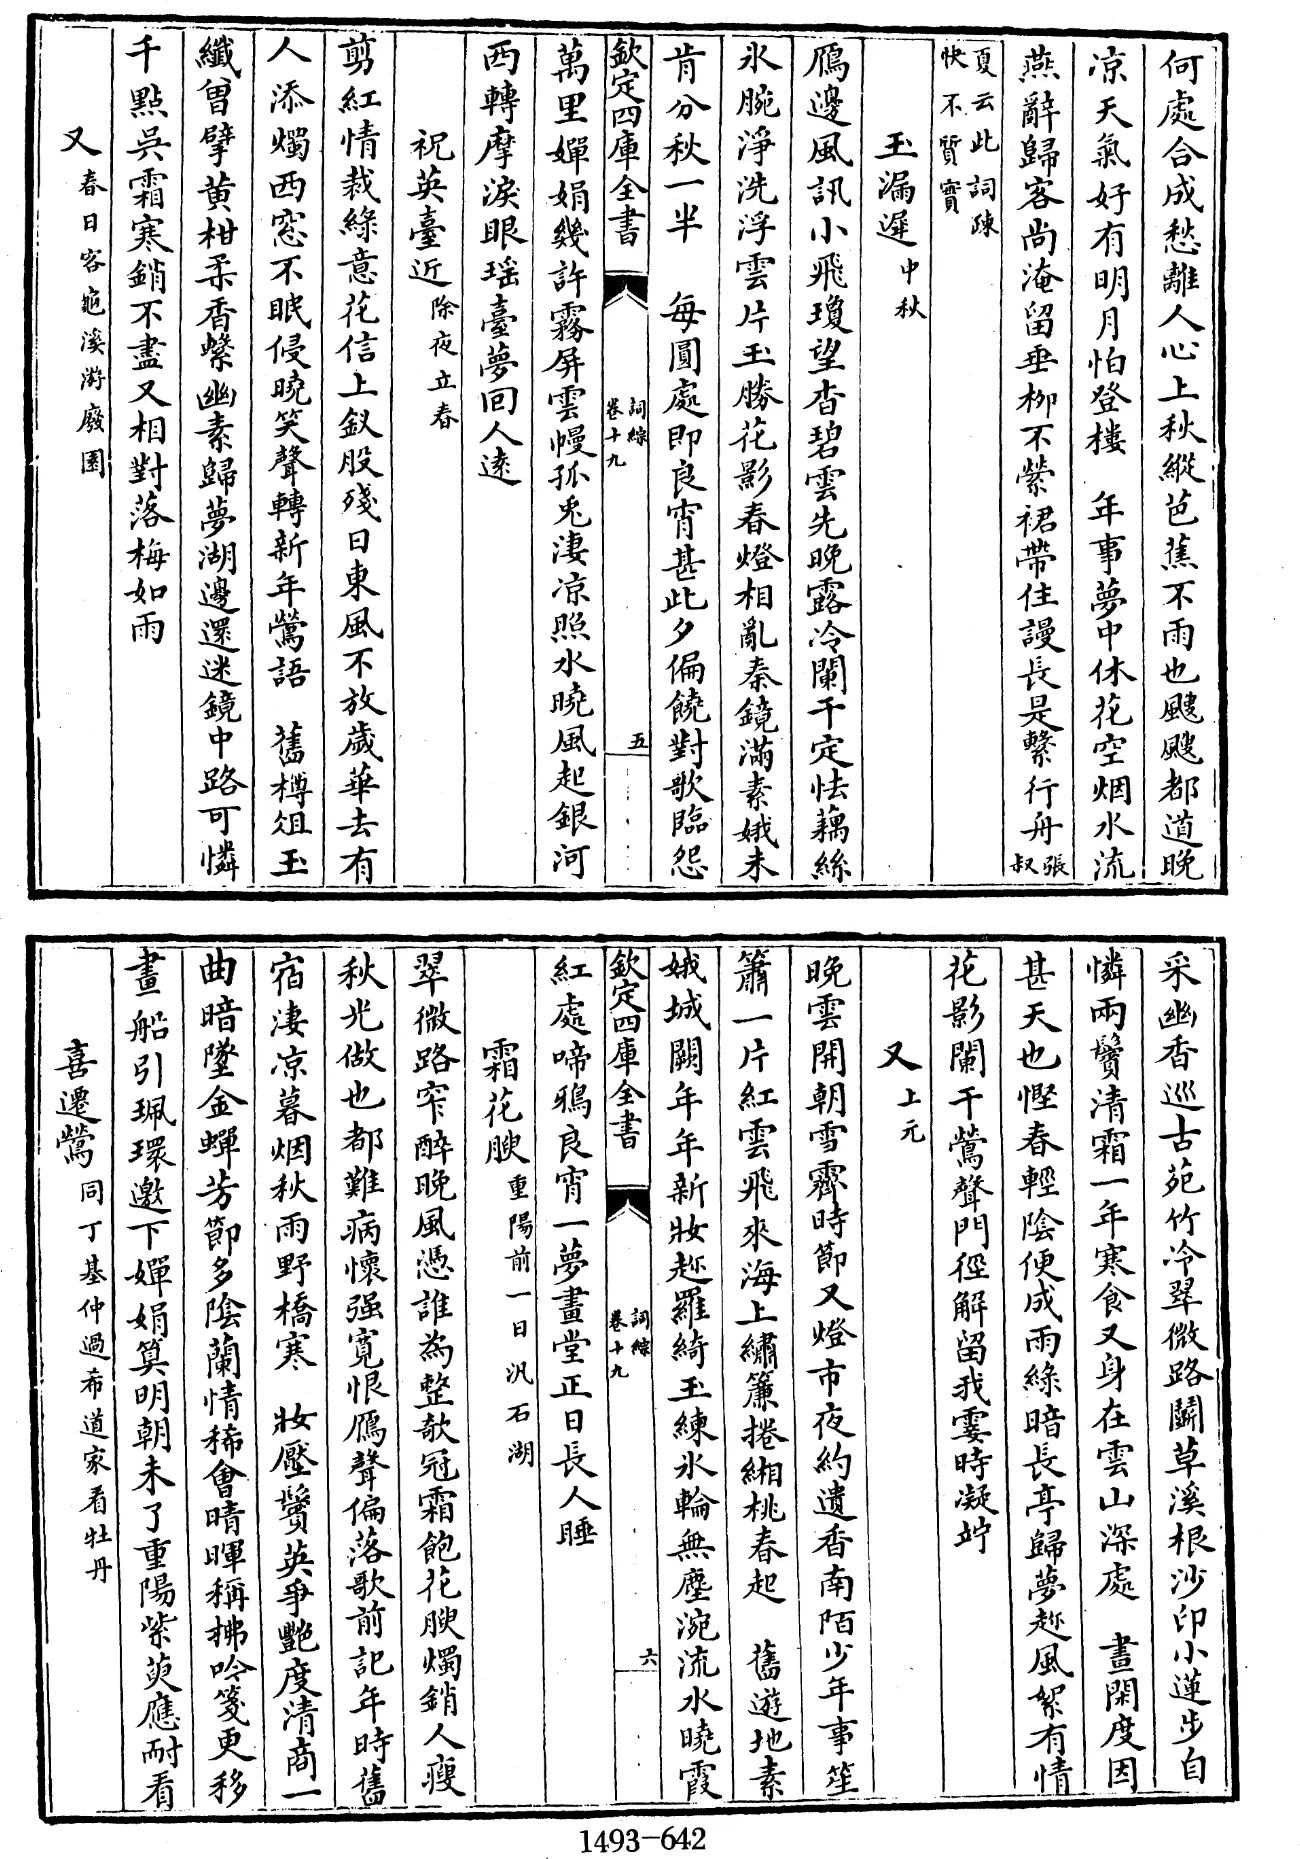 何處合成愁離人心上秋縱芭蕉不雨也颼颼都道晚
凉天氣好有明月怕登樓　年事夢中休花空烟水流
燕辭歸客尚淹留垂柳不縈裙帶住謾長是繫行舟張叔
夏云此詞踈
快不質實
玉漏遲中秋
鴈邊風訊小飛瓊望杳碧雲先晚露冷闌干定怯藕絲
氷腕淨洗浮雲片玉勝花影春燈相亂秦鏡滿素娥未
肯分秋一半　每圓處即良宵甚此夕偏饒對歌臨怨
欽定四庫全書
詞綜
卷十九
五
萬里嬋娟幾許霧屏雲幔孤兎淒凉照水曉風起銀河
西轉摩淚眼瑶臺夢回人逺
祝英臺近除夜立春
剪紅情裁綠意花信上釵股殘日東風不放歲華去有
人添燭西窓不眠侵曉笑聲轉新年鶯語　舊樽俎玉
纖曽擘黄柑柔香縈幽素歸夢湖邊還迷鏡中路可憐
千點吳霜寒銷不盡又相對落梅如雨
又春日客龜溪游廢園
采幽香巡古苑竹冷翠微路鬭草溪根沙印小蓮步自
憐兩鬢清霜一年寒食又身在雲山深處　晝閑度因
甚天也慳春輕陰便成雨綠暗長亭歸夢趂風絮有情
花影闌干鶯聲門徑解留我霎時凝竚
又上元
晚雲開朝雪霽時節又燈市夜約遺香南陌少年事笙
簫一片紅雲飛來海上繡簾捲緗桃春起　舊遊地素
娥城闕年年新妝趂羅綺玉練氷輪無塵涴流水曉霞
欽定四庫全書
詞綜
卷十九
六
紅處啼鴉良宵一夢畫堂正日長人睡
霜花腴重陽前一日汎石湖
翠微路窄醉晚風憑誰為整欹冠霜飽花腴燭銷人瘦
秋光做也都難病懷强寛恨鴈聲偏落歌前記年時舊
宿淒凉暮烟秋雨野橋寒　妝靨鬢英爭艷度清商一
曲暗墜金蟬芳節多陰蘭情稀會晴暉稱拂吟箋更移
畫船引珮環邀下嬋娟算明朝未了重陽紫萸應耐看
喜遷鶯同丁基仲過希道家看牡丹
1493-642